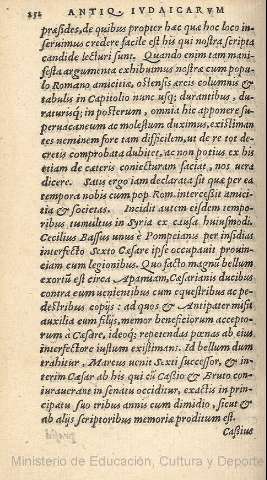 252 ANTIQ. IVDAICARVM
præsides, de quibus propter hæc quæ hoc loco in-
seruimus credere facile est his qui nostra scripta
candide lecturi sunt. Quando enim tam mani-
festa argumenta exhibuimus nostræ cum popu-
lo Romano amicitiæ, ostensis æreis columnis &
tabulis in Capitolio nunc usq; durantibus, du-
raturisq; in posterum, omnia hic apponere su-
peruacaneum ac molestum duximus, existiman
tes neminem fore tam difficilem, ut de re tot de-
cretis comprobata dubitet, ac non potius ex his
etiam de cæteris coniecturam faciat, nos uera
dicere. Satis ergo iam declarata sit quæ per ea
tempora nobis cum pop. Rom. intercessit amici-
tia & societas. Incidit autem eisdem tempo-
ribus tumultus in Syria ex causa huiusmodi.
Cecilius Bassus unus è Pompeianis per insidias
interfecto Sexto Cæsare ipse occupauit prouin-
ciam cum legionibus. Quo facto magnum bellum
exortū est circa Apamiam, Cæsarianis ducibus
contra eum uenientibus cum equestribus ac pe-
destribus copijs: ad quos & Antipater misit
auxilia cum filijs, memor beneficiorum accepto-
rum à Cæsare, ideoq; repetendas pœnas ab eius
interfectore iustum existimans. Id bellum dum
trahitur, Marcus uenit Sexti successor, & in-
terim Cæsar ab his qui cū Cassio & Bruto con-
iurauerant in senatu occiditur, exactis in prin-
cipatu suo tribus annis cum dimidio, sicut &
ab alijs scriptoribus memoriæ proditum est.
Cassius
Ministerio de Educación, Cultura y Deporte